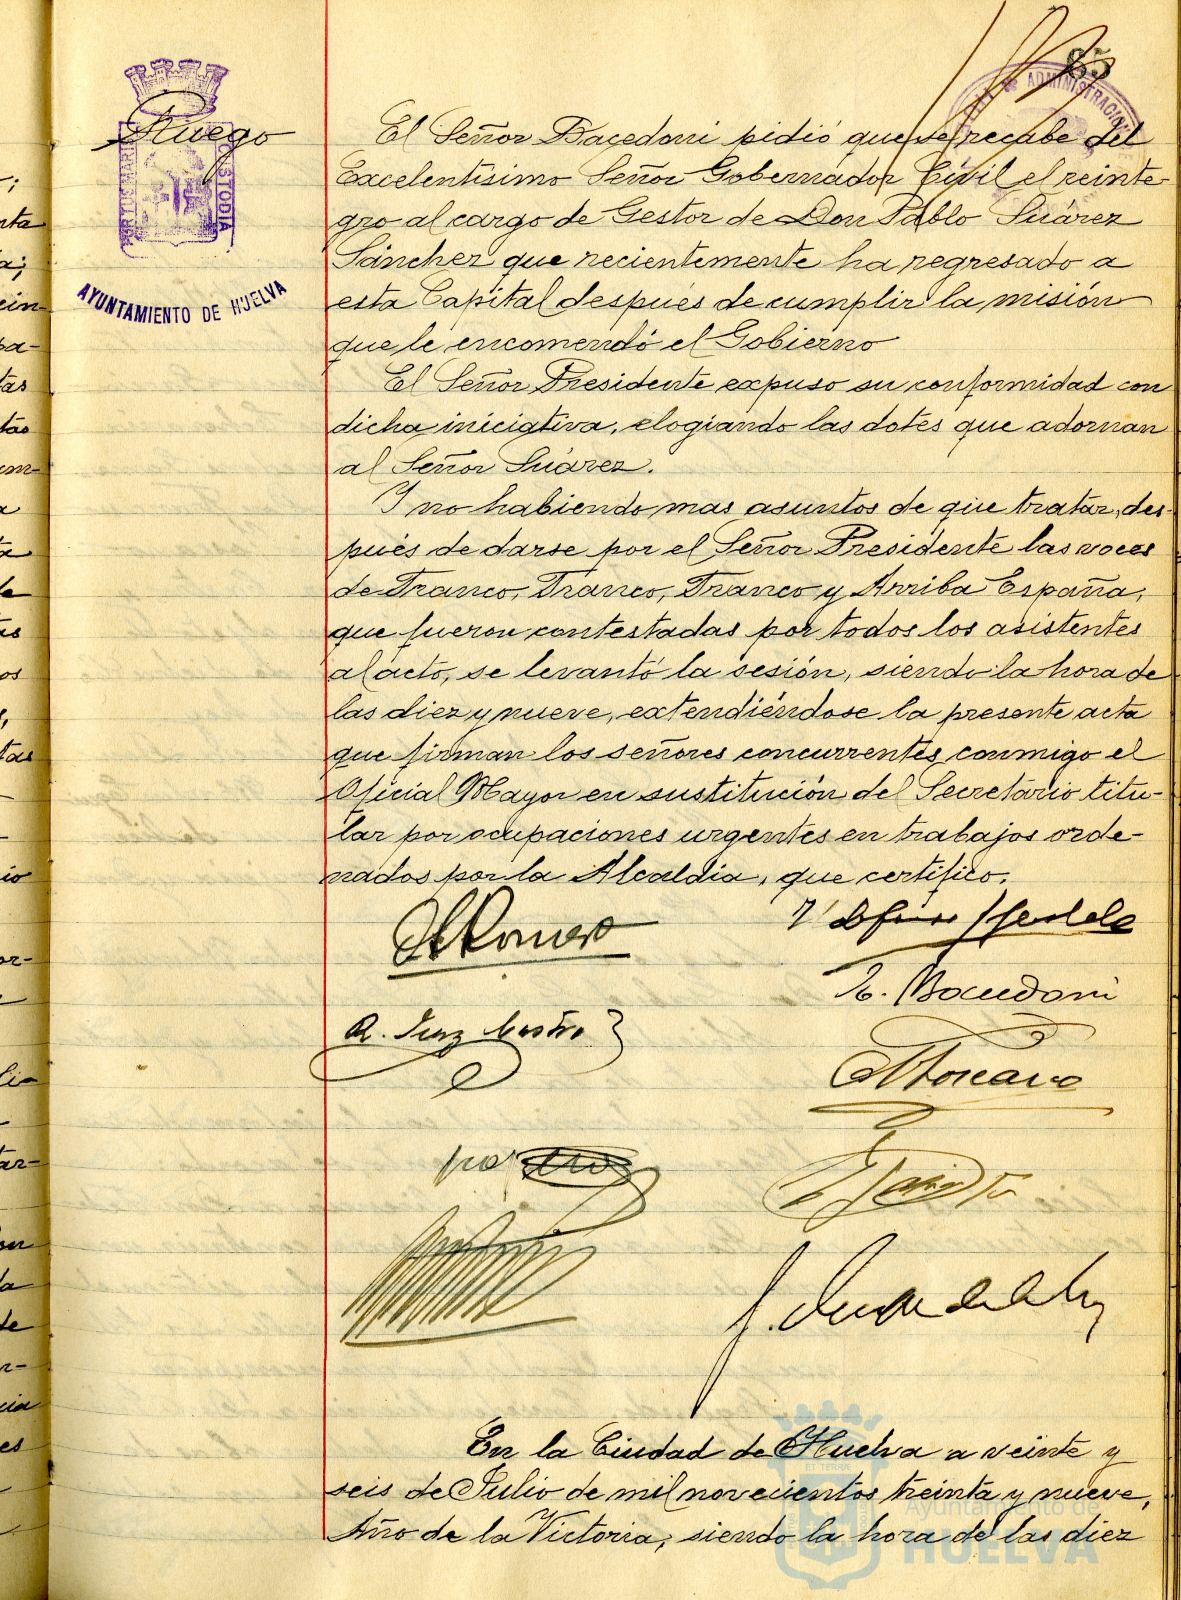 85
ADMINISTRACION
Ruego
PORTUS MARIS
CUSTODIA
AYUNTAMIENTO DE HUELVA
El Señor Bacedoni pidió que se recabe del
Excelentísimo Señor Gobernador Civil el reinte-
gro al cargo de Gestor de Don Pablo Suárez
Sánchez que recientemente ha regresado a
esta Capital después de cumplir la misión
que le encomendó el Gobierno
El Señor Presidente expuso su conformidad con
dicha iniciativa, elogiando las dotes que adornan
al Señor Suárez.
Y no habiendo mas asuntos de que tratar, des-
pués de darse por el Señor Presidente las voces
de Franco, Franco, Franco y Arriba España,
que fueron contestadas por todos los asistentes
al acto, se levantó la sesión, siendo la hora de
las diez y nueve, extendiéndose la presente acta
que firman los señores concurrentes conmigo el
Oficial Mayor en sustitución del Secretario titu-
lar por ocupaciones urgentes en trabajos orde-
nados por la Alcaldía, que certifico.
Romero
Bacedoni
En la Ciudad de Huelva a veinte y
seis de Julio de mil novecientos treinta y nueve,
Año de la Victoria, siendo la hora de las diez
Ayuntamiento de
HUELVA